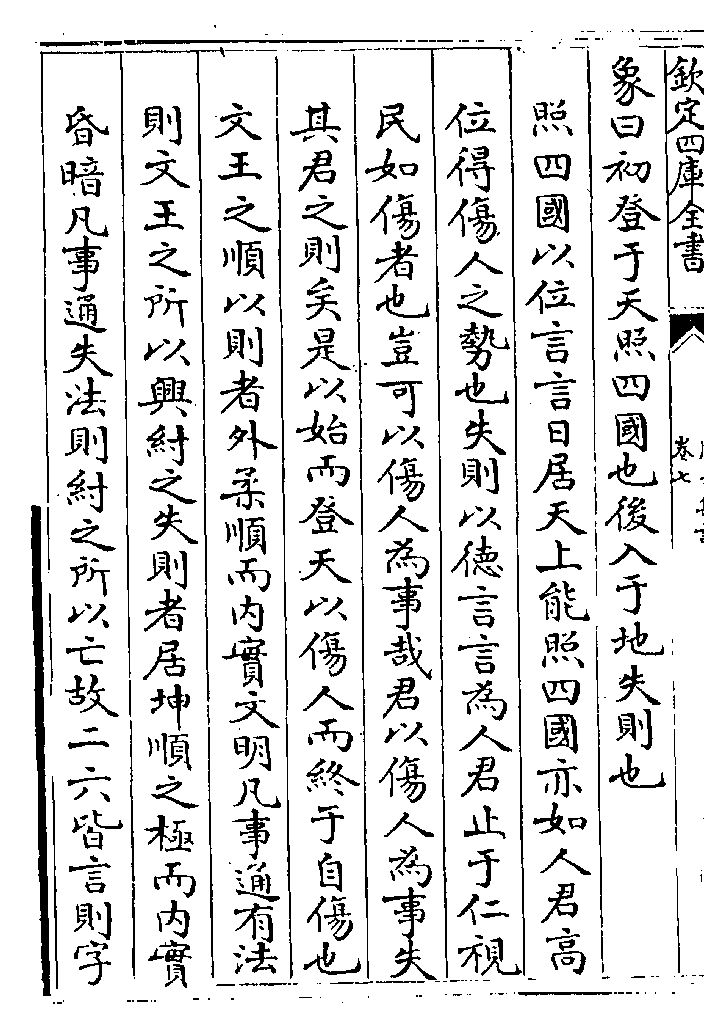 欽定四庫全書
卷七
象曰初登于天照四國也後入于地失則也
照四國以位言言日居天上能照四國亦如人君高
位得傷人之勢也失則以德言言為人君止于仁視
民如傷者也豈可以傷人為事哉君以傷人為事失
其君之則矣是以始而登天以傷人而終于自傷也
文王之順以則者外柔順而内實文明凡事通有法
則文王之所以興紂之失則者居坤順之極而内實
昏暗凡事通失法則紂之所以亡故二六皆言則字